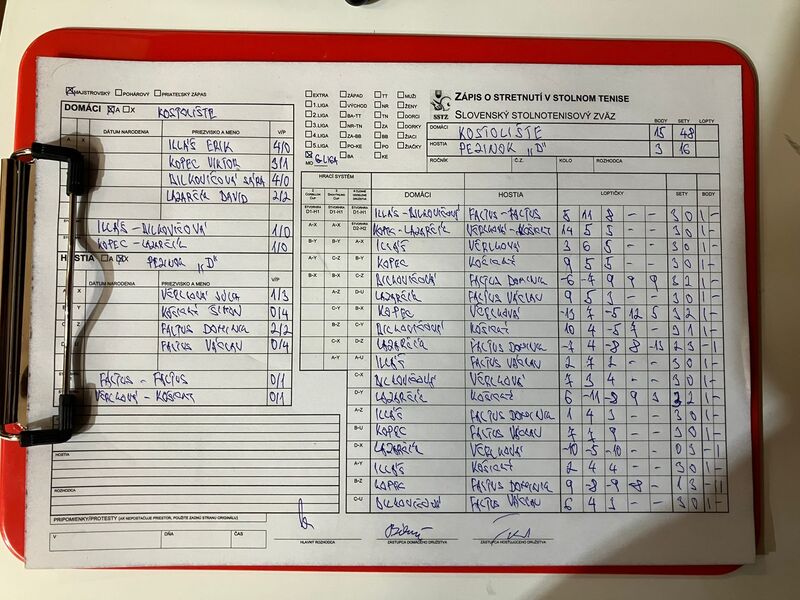 MAJSTROVSKÝ POHÁROVÝ PRIATEĽSKÝ ZÁPAS
DOMÁCI A X KOSTOLIŠTE
DÁTUM NARODENIA PRIEZVISKO A MENO V/P
ILLÁŠ ERIK 4/0
KOPEC VIKTOR 3/1
DILKOVIČOVÁ SÁRA 4/0
LAZARČÍK DAVID 2/2
ILLÁŠ - DILKOVIČOVÁ 1/0
KOPEC - LAZARČÍK 1/0
HOSTIA A X PEZINOK "D"
DÁTUM NARODENIA PRIEZVISKO A MENO V/P
1/3
ŠIMON 0/4
FACTUS DOMINIK 2/2
FACTUS VÁCLAV 0/4
FACTUS - FACTUS 0/1
0/1
HOSTIA
ROZHODCA
PRIPOMIENKY/PROTESTY (AK NEPOSTAČUJE PRIESTOR, POUŽITE ZADNÚ STRANU ORIGINÁLU)
V DŇA ČAS
EXTRA ZÁPAD TT MUŽI
1.LIGA VÝCHOD NR ŽENY
2.LIGA BA-TT TN DORCI
3.LIGA NR-TN ZA DORKY
4.LIGA ZA-BB BB ŽIACI
5.LIGA PO-KE PO ŽIAČKY
MO 6.LIGA BA KE
SSTZ
ZÁPIS O STRETNUTÍ V STOLNOM TENISE
SLOVENSKÝ STOLNOTENISOVÝ ZVÄZ
BODY SETY LOPTY
DOMÁCI KOSTOLIŠTE 15 48
HOSTIA PEZINOK "D" 3 16
ROČNÍK Č.Z. KOLO ROZHODCA
HRACÍ SYSTÉM
DOMÁCI HOSTIA LOPTIČKY SETY BODY
D1-H1 D1-H1 D1-H1 ILLÁŠ - DILKOVIČOVÁ FACTUS - FACTUS 8 11 8 - - 3 0 1 -
A-X A-X D2-H2 KOPEC - LAZARČÍK 14 5 5 - - 3 0 1 -
B-Y B-Y A-X ILLÁŠ 3 6 5 - - 3 0 1 -
A-Y C-Z B-Y KOPEC 9 5 5 - - 3 0 1 -
B-X B-X C-Z DILKOVIČOVÁ FACTUS DOMINIK -6 -7 9 9 9 3 2 1 -
A-Z D-U LAZARČÍK FACTUS VÁCLAV 9 5 3 - - 3 0 1 -
C-Y B-X KOPEC -13 7 -5 12 5 3 2 1 -
B-Z C-Y DILKOVIČOVÁ 10 4 -5 7 - 3 1 1 -
C-X D-Z LAZARČÍK FACTUS DOMINIK -7 4 -8 8 -13 2 3 - 1
A-Y A-U ILLÁŠ FACTUS VÁCLAV 2 7 2 - - 3 0 1 -
C-X DILKOVIČOVÁ 7 3 4 - - 3 0 1 -
D-Y LAZARČÍK 6 -11 -8 9 3 3 2 1 -
A-Z ILLÁŠ FACTUS DOMINIK 1 4 3 - - 3 0 1 -
B-U KOPEC FACTUS VÁCLAV 7 7 9 - - 3 0 1 -
D-X LAZARČÍK -10 -5 -10 - - 0 3 - 1
A-Y ILLÁŠ 2 4 4 - - 3 0 1 -
B-Z KOPEC FACTUS DOMINIK 9 -8 -9 -8 - 1 3 - 1
C-U DILKOVIČOVÁ FACTUS VÁCLAV 6 4 3 - - 3 0 1 -
HLAVNÝ ROZHODCA ZÁSTUPCA DOMÁCEHO DRUŽSTVA ZÁSTUPCA HOSŤUJÚCEHO DRUŽSTVA